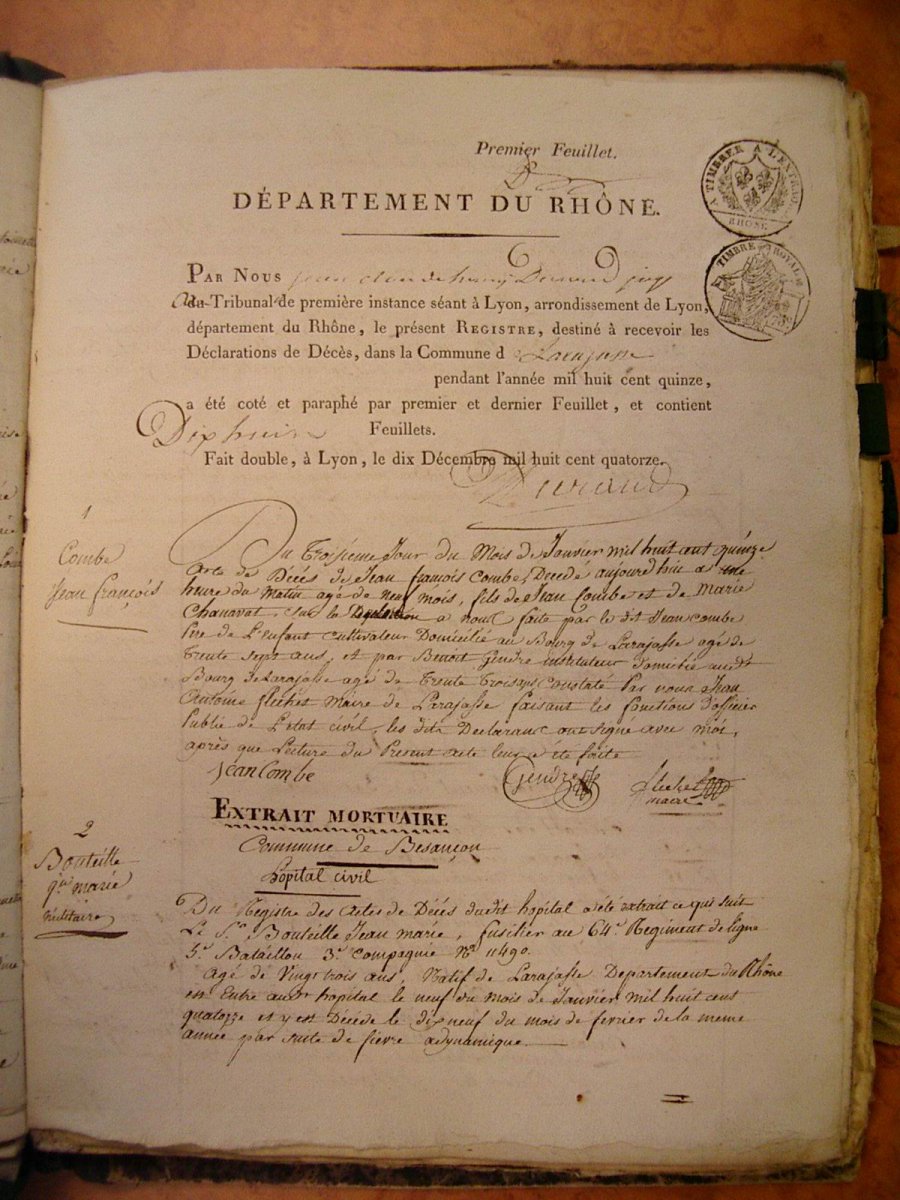 Premier Feuillet.
DÉPARTEMENT DU RHÔNE.
A TIMBRER A L'EXTRAORD.
RHÔNE
TIMBRE ROYAL
PAR NOUS jean claude Durand juge
au Tribunal de première instance séant à Lyon, arrondissement de Lyon,
département du Rhône, le présent REGISTRE, destiné à recevoir les
Déclarations de Décès, dans la Commune d Larajasse
pendant l'année mil huit cent quinze,
a été coté et paraphé par premier et dernier Feuillet, et contient
Dix huit Feuillets.
Fait double, à Lyon, le dix Décembre mil huit cent quatorze.
Durand
1
Combe
Jean françois
Du troisieme Jour du Mois de Janvier mil huit cent quinze
acte de Décés de Jean françois Combe, Decedé aujourd'hui a une
heure du Matin agé de neuf mois, fils de Jean Combe et de Marie
Chanavat, sur la Declaration a nous faite par le dit Jean Combe
Pere de L'enfant cultivateur Domicilié au Bourg de Larajasse agé de
trente sept ans, et par Benoit Gendre instituteur Domicilié audt
Bourg de Larajasse agé de trente trois ans Constaté Par nous Jean
Antoine flechet Maire de Larajasse faisant les fonctions d'officier
Public de L'etat civil, les dits Declarans ont signé avec moi,
après que Lecture du Present acte leur a été faite
Jean Combe Gendre flechet
maire
2
Bouteille
jn marie
militaire
EXTRAIT MORTUAIRE
Commune de Besançon
hôpital civil
Du Registre des Actes de Décés dudit hopital a été extrait ce qui suit
Le Sr. Bouteille Jean marie, fusilier au 64e Regiment de ligne
5e Bataillon 3e Compagnie No 11490.
agé de Vingt trois ans, Natif de Larajasse Departement du Rhône
est Entré audt hopital le neuf du mois de Janvier mil huit cent
quatorze et y est Décédé le dix neuf du mois de fevrier de la meme
année par suite de fievre adynamique.